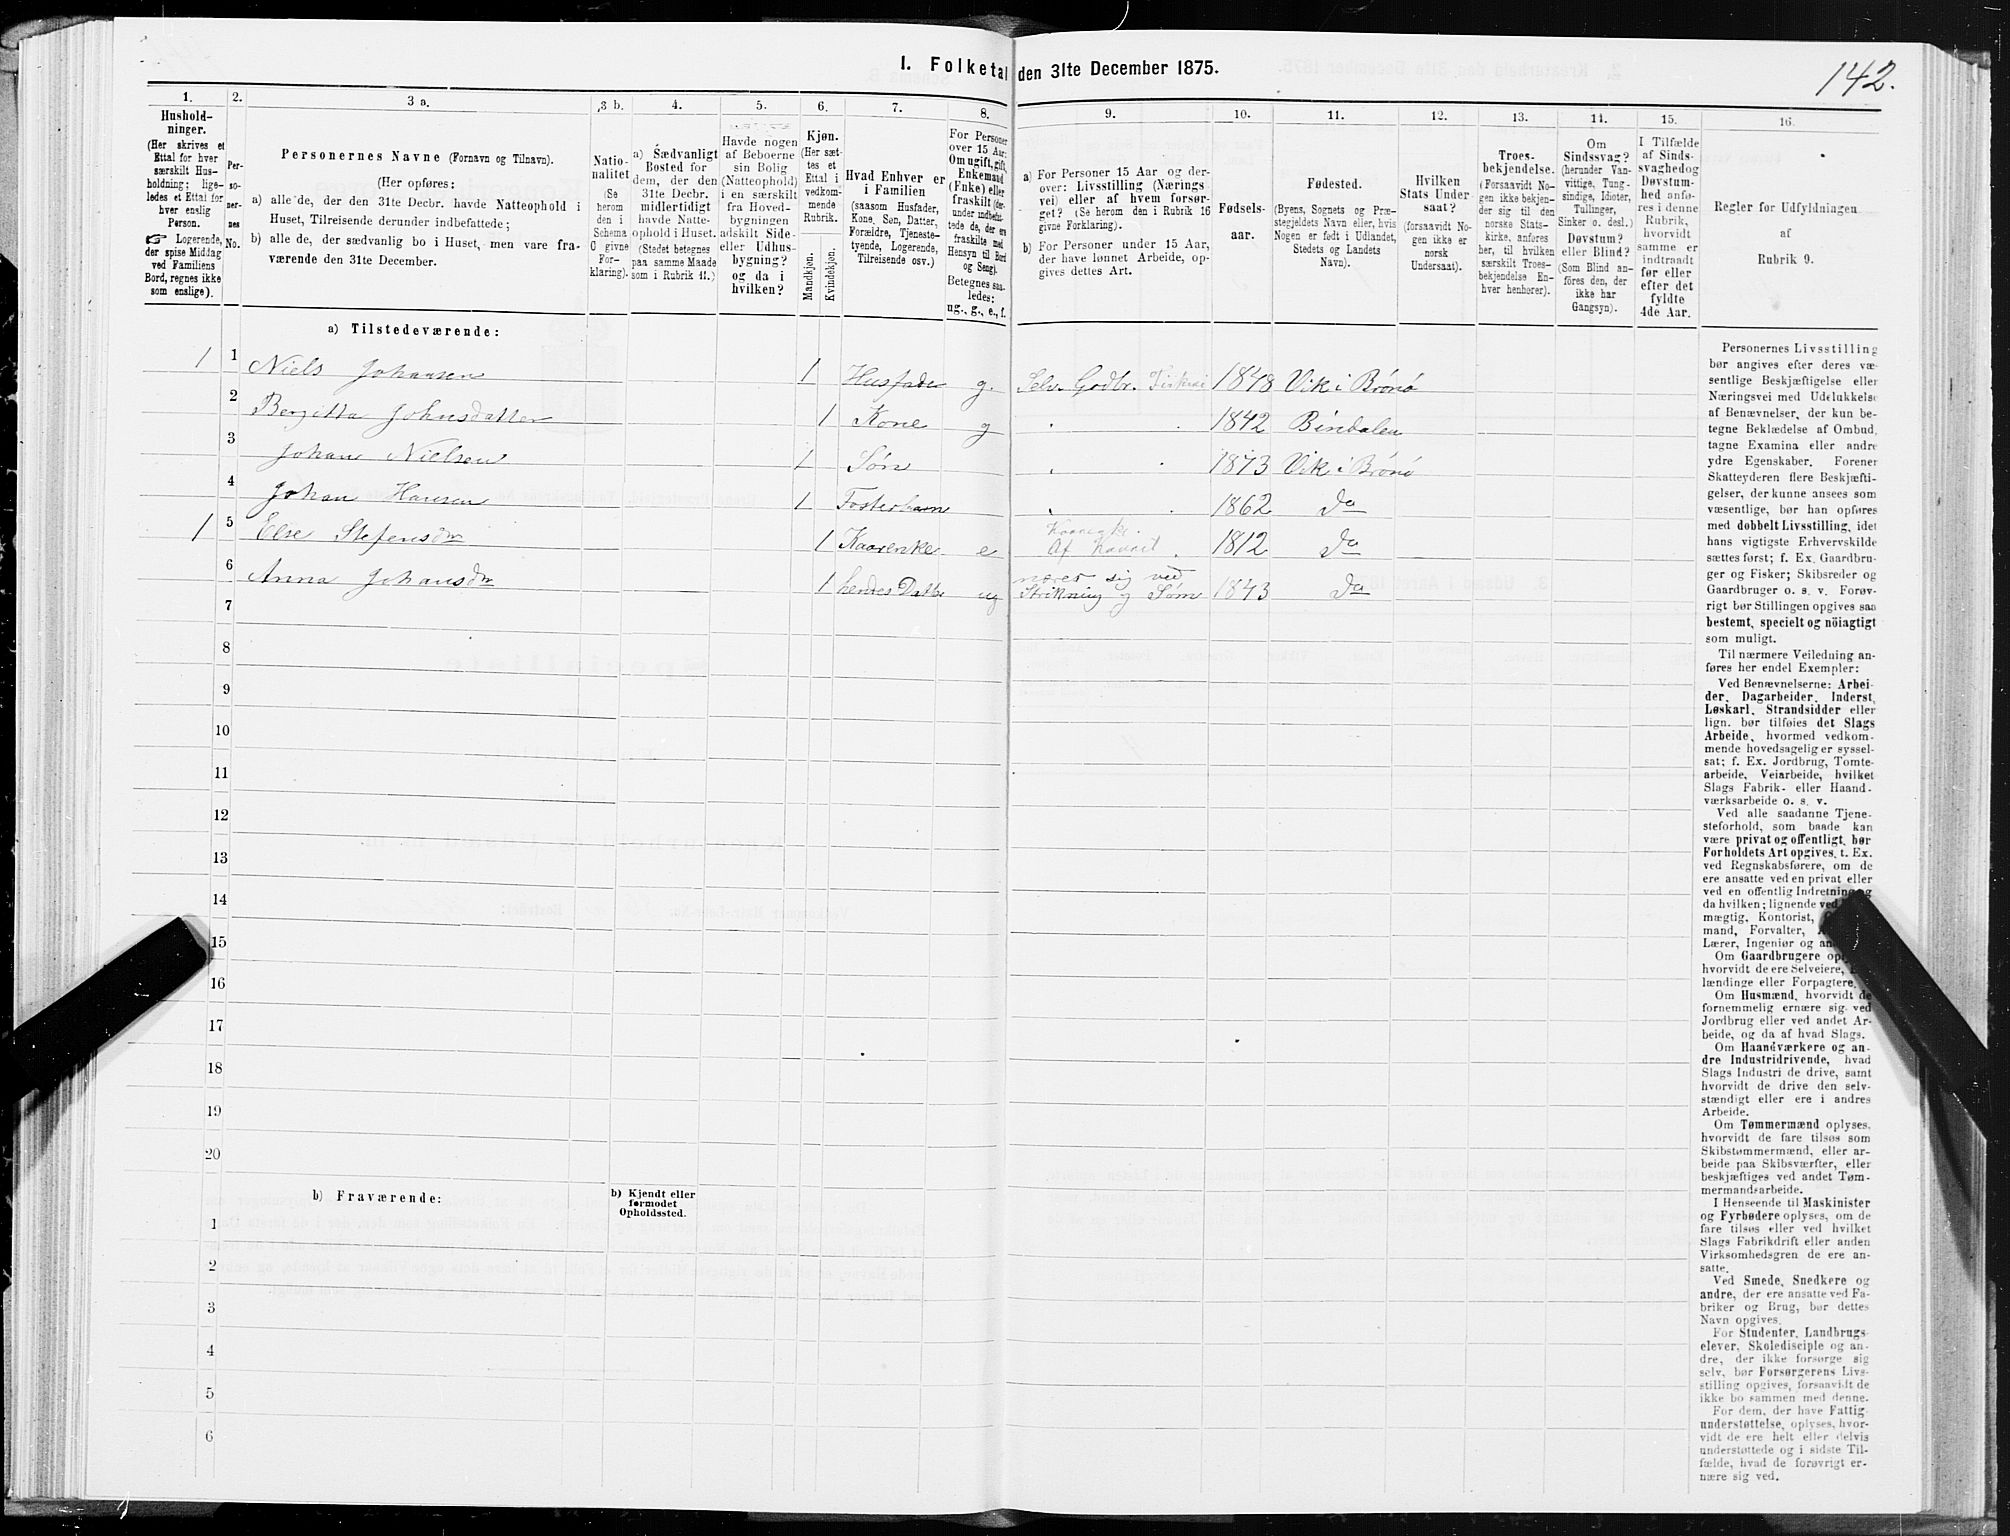 I. Folketal den 31te December 1875.
142.
1. 2. 3 a. 3 b. 4. 5. 6. 7. 8. 9. 10. 11. 12. 13. 14. 15. 16.
Hushold-
ninger.
(Her skrives et
Ettal for hver
særskilt Hus-
holdning; lige-
ledes et Ettal for
hver enslig
Person.
☞ Logerende,
der spise Middag
ved Familiens
Bord, regnes ikke
som enslige).
Per-
so-
ner-
nes
No.
Personernes Navne (Fornavn og Tilnavn).
(Her opføres:
a) alle de, der den 31te Decbr. havde Natteophold i
Huset, Tilreisende derunder indbefattede;
b) alle de, der sædvanlig bo i Huset, men vare fra-
værende den 31te December.
Natio-
nalitet
(Se
herom
den i
Schema
C givne
For-
klaring).
a) Sædvanligt
Bosted for
dem, der den
31te Decbr.
midlertidigt
havde Natte-
ophold i Huset.
(Stedet betegnes
paa samme Maade
som i Rubrik 11.)
Havde nogen
af Beboerne
sin Bolig
(Natteophold)
i en særskilt
fra Hoved-
bygningen
adskilt Side-
eller Udhus-
bygning?
og da i
hvilken?
Kjøn.
(Her sæt-
tes et
Ettal i
vedkom-
mende
Rubrik.
Mandkjøn.
Kvindekjøn.
Hvad Enhver er
i Familien
(saasom Husfader,
Kone, Søn, Datter,
Forældre, Tjeneste-
tyende, Logerende,
Tilreisende osv.)
For Personer
over 15 Aar:
Om ugift, gift,
Enkemand
(Enke) eller
fraskilt (der-
under indbefat-
tede de, der ere
fraskilte med
Hensyn til Bord
og Seng).
Betegnes saa-
ledes:
ug., g., e., f.
a) For Personer 15 Aar og der-
over: Livsstilling (Nærings-
vei) eller af hvem forsør-
get? (Se herom den i Rubrik 16
givne Forklaring).
b) For Personer under 15 Aar,
der have lønnet Arbeide, op-
gives dettes Art.
Fødsels-
aar.
Fødested.
(Byens, Sognets og Præ-
stegjeldets Navn eller, hvis
Nogen er født i Udlandet,
Stedets og Landets
Navn).
Hvilken
Stats Under-
saat?
(forsaavidt No-
gen ikke er
norsk
Undersaat).
Troes-
bekjendelse.
(Forsaavidt No-
gen ikke bekjen-
der sig til den
norske Stats-
kirke, anføres
her, til hvilken
særskilt Troes-
bekjendelse En-
hver henhører).
Om
Sindssvag?
(herunder Van-
vittige, Tung-
sindige, Idioter,
Tullinger,
Sinker o. desl.)
Døvstum?
eller Blind?
(Som Blind an-
føres den, der
ikke har
Gangsyn).
I Tilfælde
af Sinds-
svaghed og
Døvstum-
hed anfø-
res i denne
Rubrik,
hvorvidt
samme er
indtraadt
før eller
efter det
fyldte
4de Aar.
Regler for Udfyldningen
af
Rubrik 9.
a) Tilstedeværende:
1 1 Niels Johansen 1 Husfader g. Selv. Grdbr. Fiskeri 1848 Vik i Brønø
2 Bergitta Johnsdatter 1 Kone g 1842 Bindalen
3 Johan Nielsen 1 Søn 1873 Vik i Brønø
4 Johan Hansen 1 Fosterbarn 1862 Do
1 5 Else Stefensdtr 1 Kaarenke e Kaarenke. Af Kaarit 1812 Do
6 Anna Johansdtr 1 hendes Datter ug næres sig ved Strikning og Søm 1843 Do
7
8
9
10
11
12
13
14
15
16
17
18
19
20
b) Fraværende:
b) Kjendt eller
formodet
Opholdssted.
1
2
3
4
5
6
Personernes Livsstilling
bør angives efter deres væ-
sentlige Beskjæftigelse eller
Næringsvei med Udelukkelse
af Benævnelser, der kun be-
tegne Beklædelse af Ombud,
tagne Examina eller andre
ydre Egenskaber. Forener
Skatteyderen flere Beskjæfti-
gelser, der kunne ansees som
væsentlige, bør han opføres
med dobbelt Livsstilling, idet
hans vigtigste Erhvervskilde
sættes først; f. Ex. Gaardbru-
ger og Fisker; Skibsreder og
Gaardbruger o. s. v. Forøv-
rigt bør Stillingen opgives saa
bestemt, specielt og nöiagtigt
som muligt.
Til nærmere Veiledning an-
føres her endel Exempler:
Ved Benævnelserne: Arbei-
der, Dagarbeider, Inderst,
Løskarl, Strandsidder eller
lign. bør tilføies det Slags
Arbeide, hvormed vedkom-
mende hovedsagelig er syssel-
sat; f. Ex. Jordbrug, Tomte-
arbeide, Veiarbeide, hvilket
Slags Fabrik- eller Haand-
værksarbeide o. s. v.
Ved alle saadanne Tjene-
steforhold, som baade kan
være privat og offentligt, bør
Forholdets Art opgives, t. Ex.
ved Regnskabsførere, om de
ere ansatte ved en privat eller
ved en offentlig Indretning og
da hvilken; lignende ved
mægtig, Kontorist,
mand, Forvalter,
Lærer, Ingeniør og
Om Gaardbrugere
hvorvidt de ere Selveiere,
lændinge eller Forpagtere.
Om Husmænd, hvorvidt de
fornemmelig ernære sig ved
Jordbrug eller ved andet Ar-
beide, og da af hvad Slags.
Om Haandværkere og an-
dre Industridrivende, hvad
Slags Industri de drive, samt
hvorvidt de drive den selv-
stændigt eller ere i andres
Arbeide.
Om Tømmermænd oplyses,
hvorvidt de fare tilsøs som
Skibstømmermænd, eller ar-
beide paa Skibsværfter, eller
beskjæftiges ved andet Tøm-
mermandsarbeide.
I Henseende til Maskinister
og Fyrbødere oplyses, om de
fare tilsøs eller ved hvilket
Slags Fabrikdrift eller anden
Virksomhedsgren de ere an-
satte.
Ved Smede, Snedkere og
andre, der ere ansatte ved Fa-
briker og Brug, bør dettes
Navn opgives.
For Studenter, Landbrugs-
elever, Skoledisciple og an-
dre, der ikke forsørge sig
selv, bør Forsørgerens Livs-
stilling opgives, forsaavidt de
ikke bo sammen med denne.
For dem, der have Fattig-
understøttelse, oplyses, hvor-
vidt de ere helt eller delvis
understøttede og i sidste Til-
fælde, hvad de forøvrigt er-
nære sig ved.